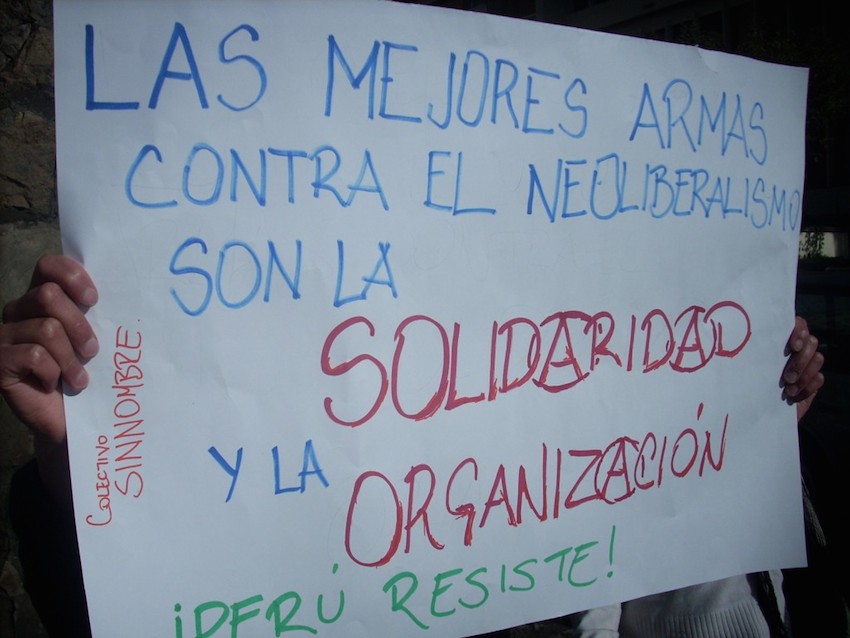 LAS MEJORES ARMAS
CONTRA EL NEOLIBERALISMO
SON LA
SOLIDARIDAD
Y LA
ORGANIZACIÓN
¡PERÚ RESISTE!
COLECTIVO
SINNOMBRE.